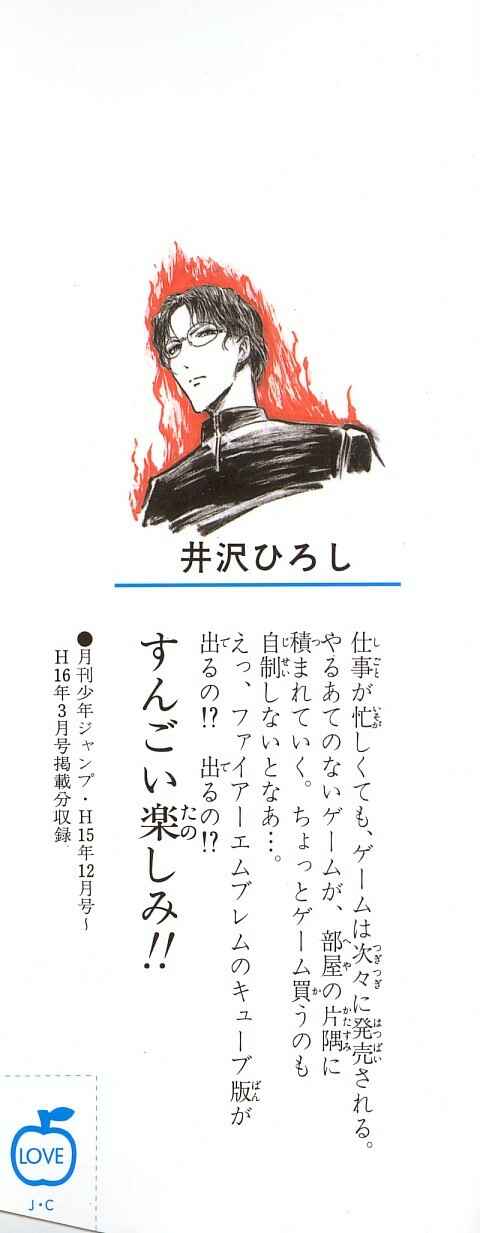 井沢ひろし
仕事が忙しくても、ゲームは次々に発売される。
やるあてのないゲームが、部屋の片隅に
積まれていく。ちょっとゲーム買うのも
自制しないとなあ…。
えっ、ファイアーエムブレムのキューブ版が
出るの!?　出るの!?
すんごい楽しみ!!
●月刊少年ジャンプ・H15年12月号~
H16年3月号掲載分収録
LOVE
J・C